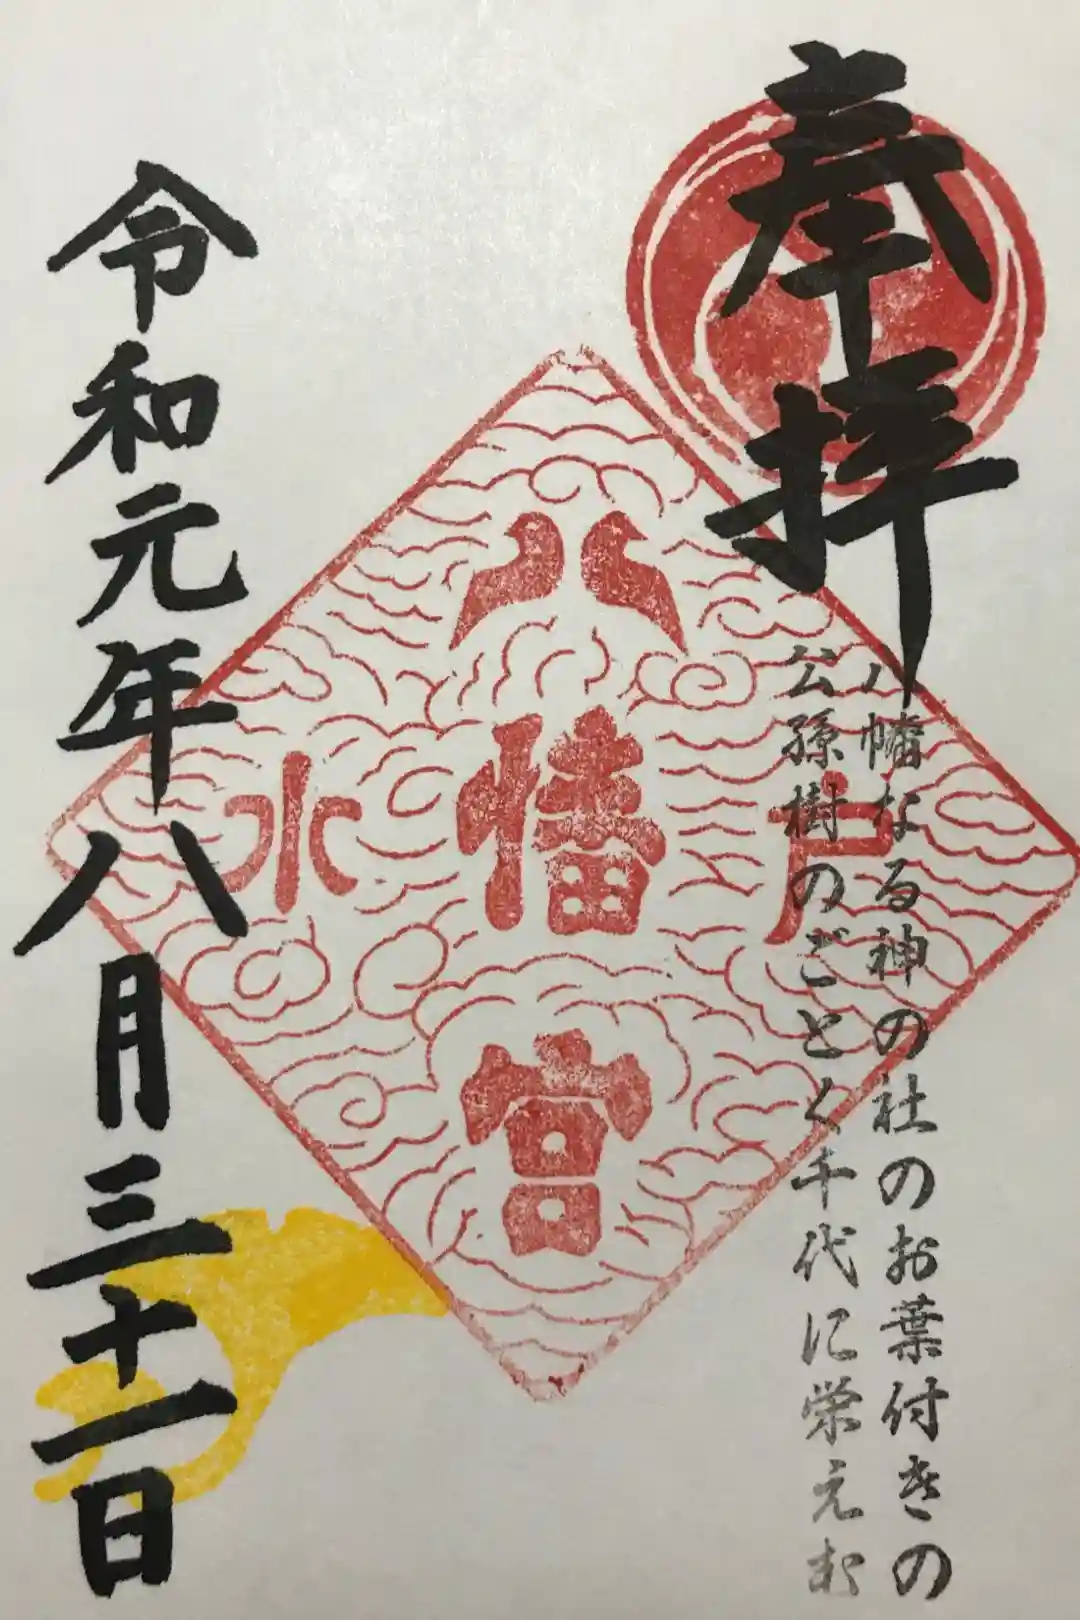 奉拝
八幡なる神の社のお葉付きの
公孫樹のごとく千代に栄えむ
水戸
八幡宮
令和元年八月三十一日